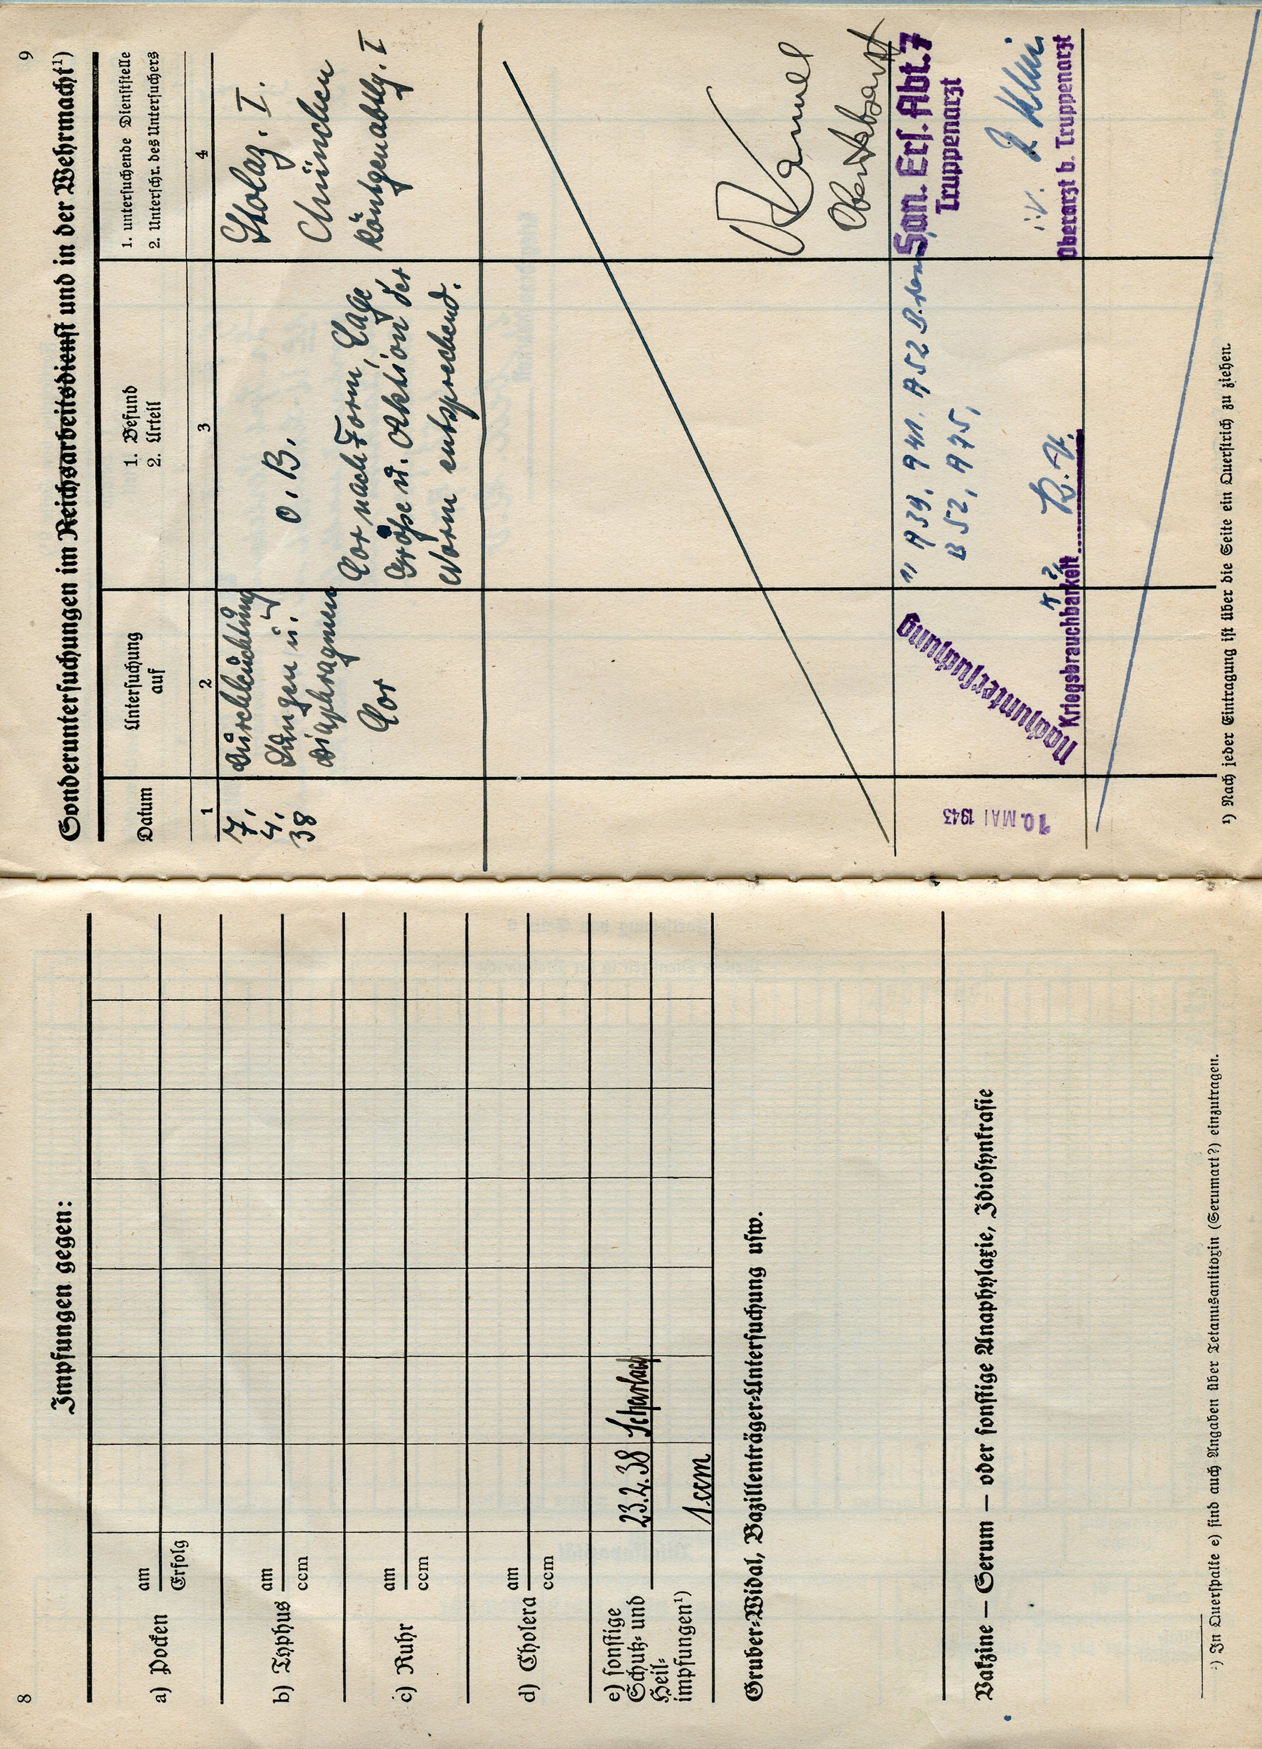 8
Impfungen gegen:
a) Pocken
am
Erfolg
b) Typhus
am
ccm
c) Ruhr
am
ccm
d) Cholera
am
ccm
e) sonstige
Schutz- und
Heil-
impfungen¹)
23.2.38 Scharlach
1 ccm
Gruber-Widal, Bazillenträger-Untersuchung usw.
Vakzine — Serum — oder sonstige Anaphylaxie, Idiosynkrasie
¹) In Querspalte e) sind auch Angaben über Tetanusantitoxin (Serumart?) einzutragen.
9
Sonderuntersuchungen im Reichsarbeitsdienst und in der Wehrmacht¹)
Datum
Untersuchung
auf
1. Befund
2. Urteil
1. untersuchende Dienststelle
2. Unterschr. des Untersuchers
1
2
3
4
7.
4.
38
Durchleuchtung
Lungen u.
Diaphragmen
Cor
o. B.
Cor nach Form, Lage
Größe u. Aktion der
Norm entsprechend.
Stolaz. I.
München
Röntgenabtlg. I
Oberstabsarzt
10. MAI 1943
Nachuntersuchung
1) A39, A41, A52
B52, A75,
Kriegsbrauchbarkeit
San. Ers. Abt. 7
Truppenarzt
i.V.
Oberarzt b. Truppenarzt
¹) Nach jeder Eintragung ist über die Seite ein Querstrich zu ziehen.